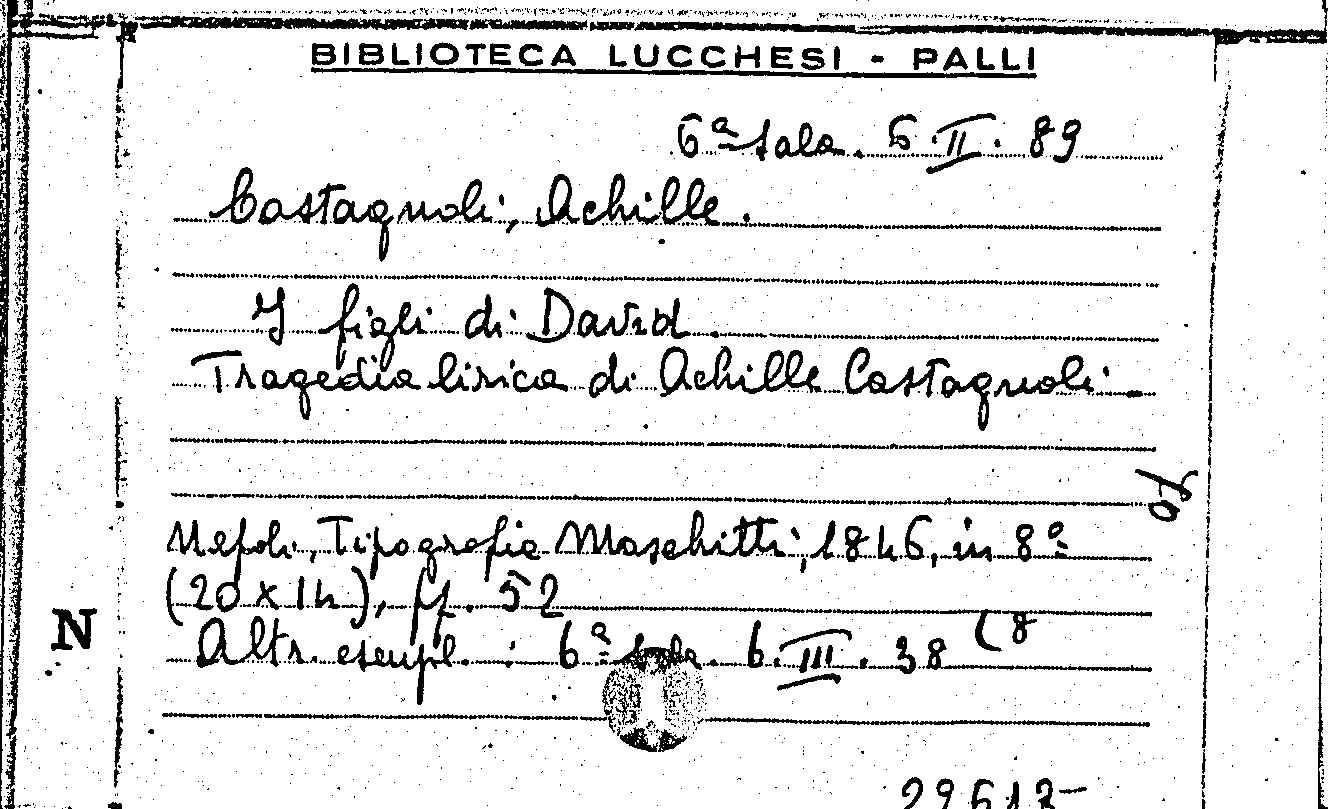 BIBLIOTECA LUCCHESI - PALLI
6ª sala. 6 II. 89
Castagnoli, Achille.
I figli di David.
Tragedia lirica di Achille Castagnoli.
Napoli, Tipografia Maschitti, 1846, in 8º
(20 x 14), ff. 52
Altr. esempl. : 6ª sala. 6. III. 38 (8
N
29613-